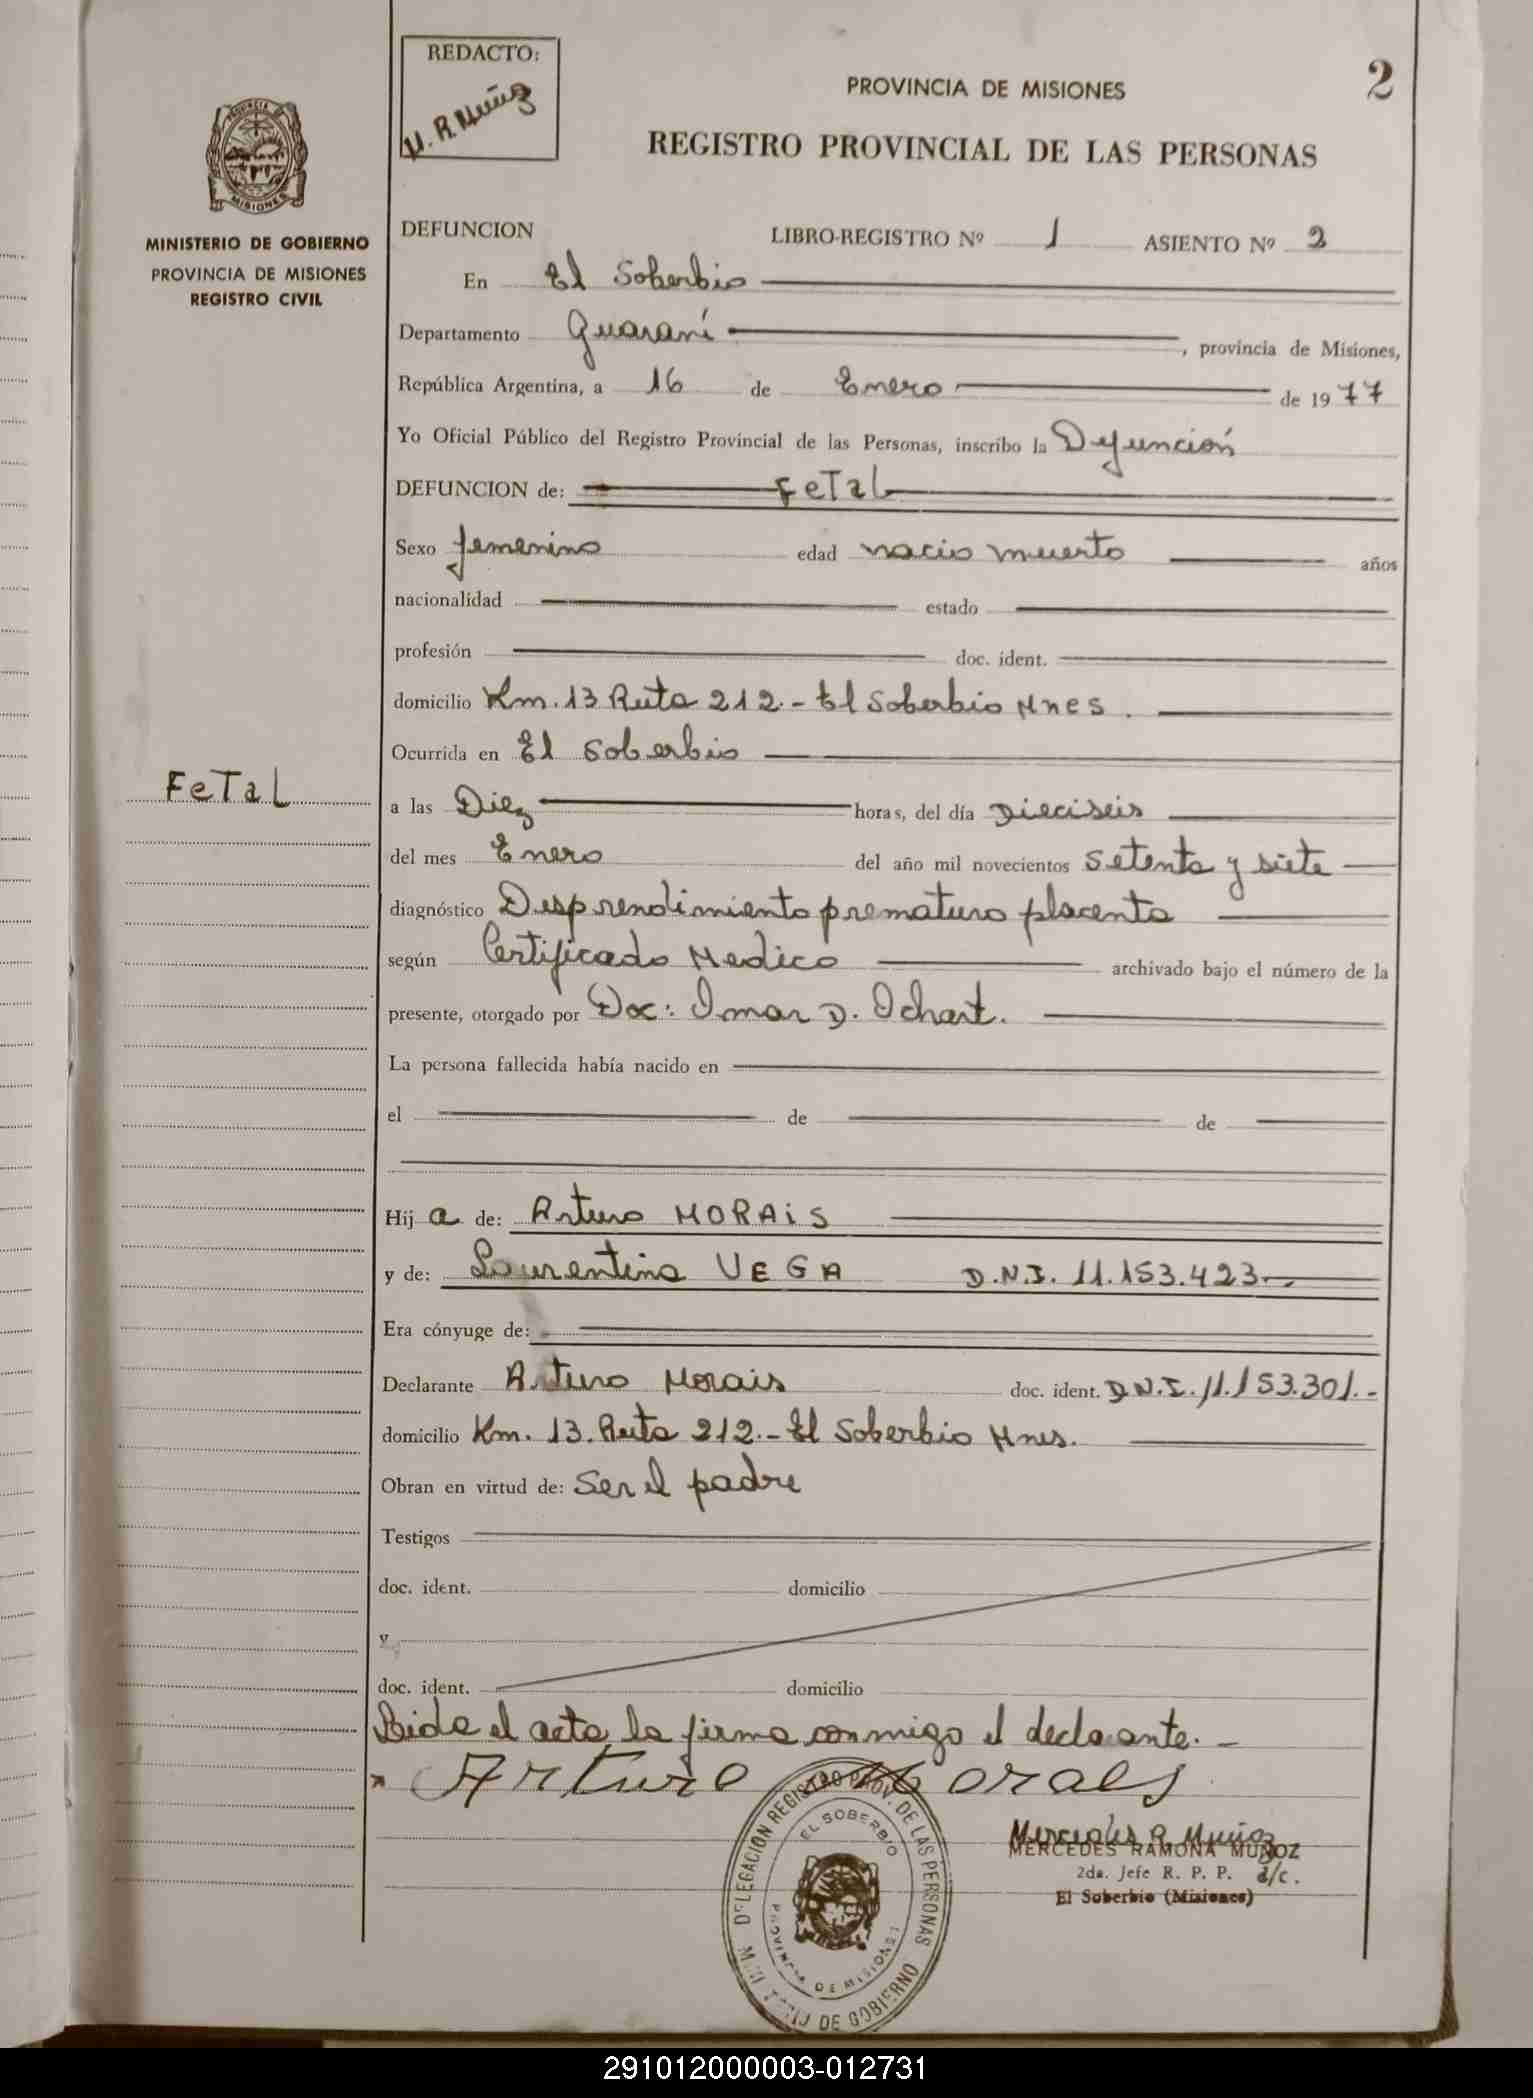 REDACTO:
M. R. Muñoz
2
PROVINCIA DE MISIONES
REGISTRO PROVINCIAL DE LAS PERSONAS
PROVINCIA
MISIONES
MINISTERIO DE GOBIERNO
PROVINCIA DE MISIONES
REGISTRO CIVIL
DEFUNCION LIBRO-REGISTRO Nº 1 ASIENTO Nº 2
En El Soberbio
Departamento Guaraní, provincia de Misiones,
República Argentina, a 16 de Enero de 1977
Yo Oficial Público del Registro Provincial de las Personas, inscribo la Defunción
DEFUNCION de: FeTal
Sexo femenino edad nacio muerto años
nacionalidad estado
profesión doc. ident.
domicilio Km. 13 Ruta 212.- El Soberbio Mnes.
Ocurrida en El Soberbio
FeTal
a las Diez horas, del día Dieciseis
del mes Enero del año mil novecientos setenta y siete
diagnóstico Desprendimiento prematuro placenta
según Certificado Medico archivado bajo el número de la
presente, otorgado por Doc: Omar D. Ochart.
La persona fallecida había nacido en
el de de
Hij a de: Arturo MORAiS
y de: Laurentina VEGA D.N.I. 11.153.423.-
Era cónyuge de:
Declarante Arturo Morais doc. ident. D.N.I. 11.153.301.-
domicilio Km. 13. Ruta 212.- El Soberbio Mnes.
Obran en virtud de: Ser el padre
Testigos
doc. ident. domicilio
y
doc. ident. domicilio
Leida el acta la firma conmigo el declarante. -
Arturo Moraes
DELEGACION REGISTRO PROV. DE LAS PERSONAS
EL SOBERBIO
PROVINCIA DE MISIONES
DE GOBIERNO
Mercedes R. Muñoz
MERCEDES RAMONA MUÑOZ
2da. Jefe R. P. P. d/c.
El Soberbio (Misiones)
291012000003-012731